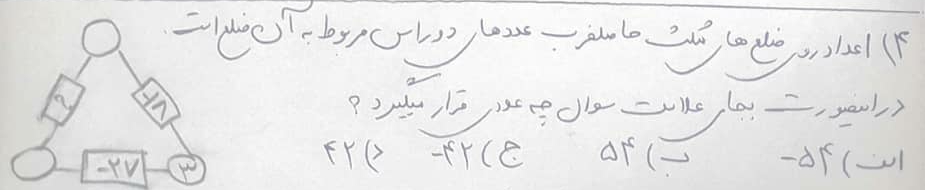 ۴) اعداد روی ضلع های مثلث حاصلضرب عددهای دو راس مربوط به آن ضلع است.
در اینصورت بجای علامت سوال چه عددی قرار میگیرد ؟
الف) ۵۴- ب) ۵۴ ج) ۴۲- د) ۴۲
؟
۱۸
-۲۷
۳